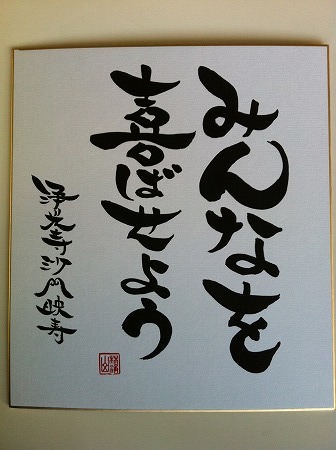 みんなを
喜ばせよう
浄光寺沙門映寿